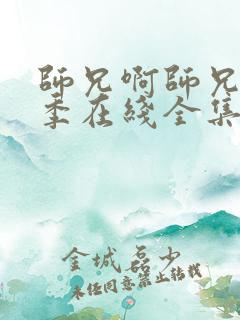 師兄啊師兄
季在綫全集
金城磊少
未经同意禁止转载